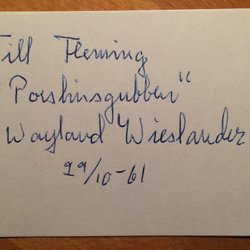 Till Fleming
"Poeshinsgubben"
Wayland Wieslander
29/10-61